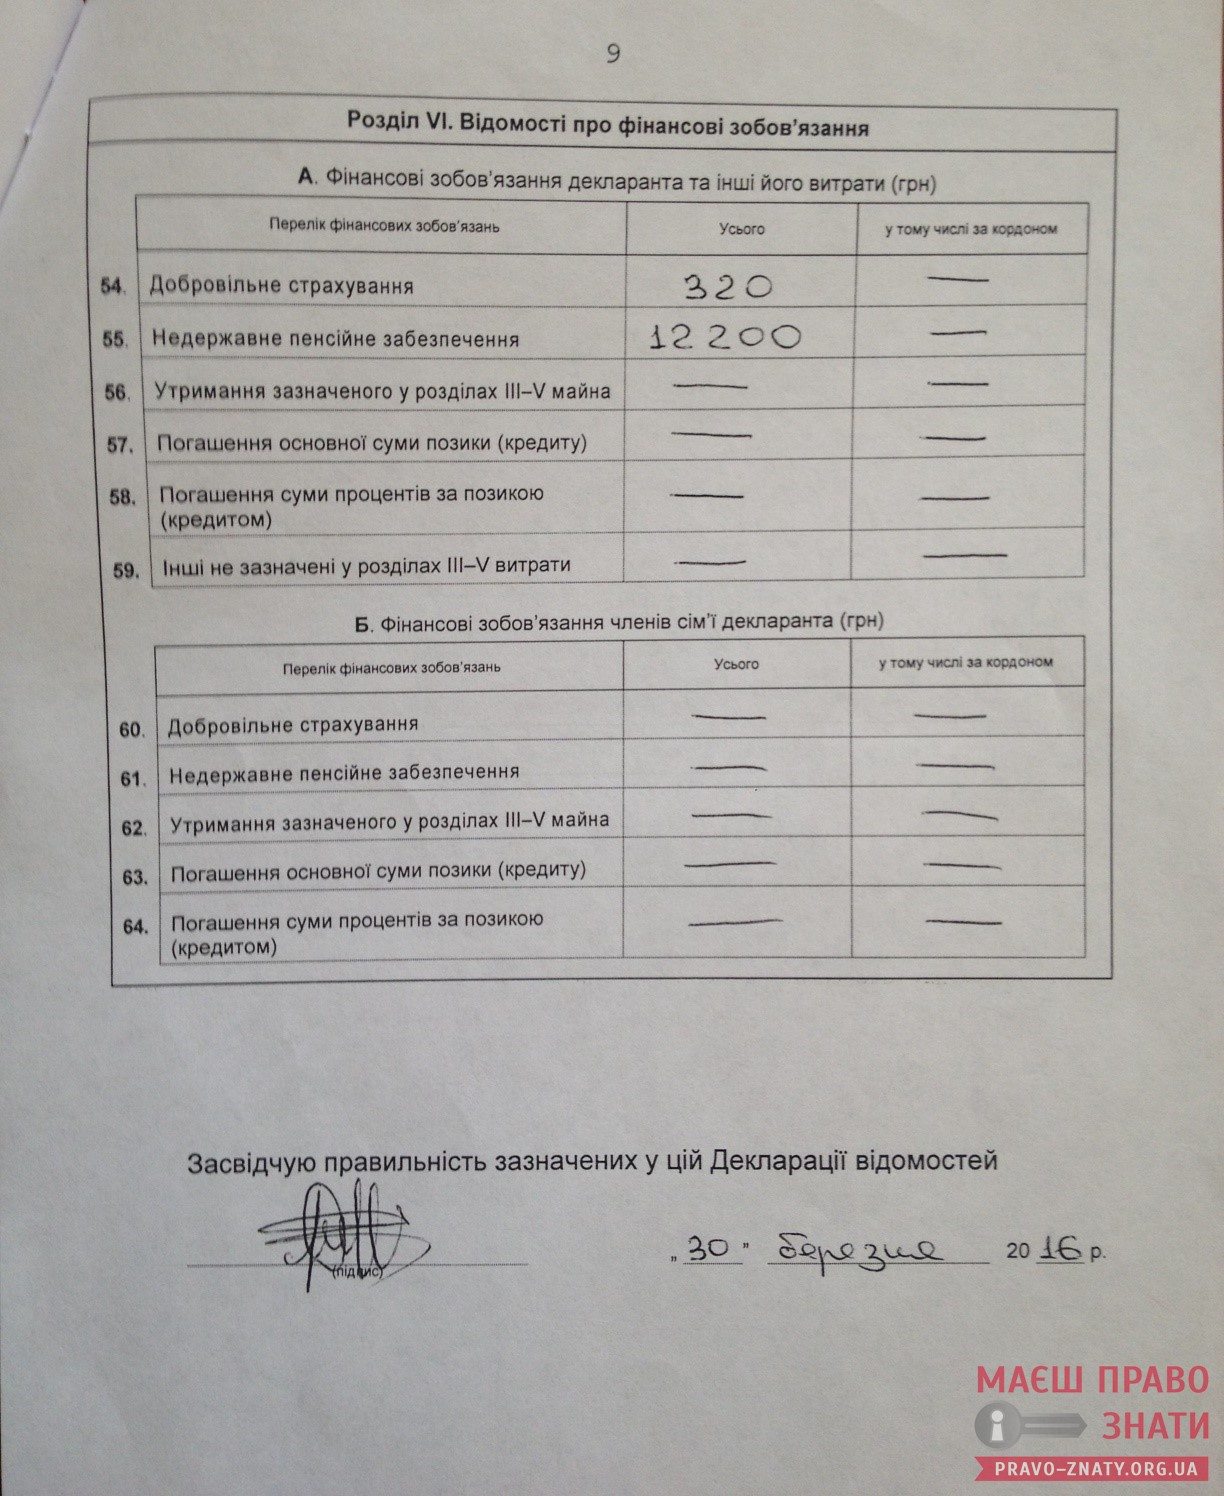 9
Розділ VI. Відомості про фінансові зобов'язання
А. Фінансові зобов'язання декларанта та інші його витрати (грн)
Перелік фінансових зобов'язань Усього у тому числі за кордоном
54. Добровільне страхування 320 —
55. Недержавне пенсійне забезпечення 12200 —
56. Утримання зазначеного у розділах III–V майна — —
57. Погашення основної суми позики (кредиту) — —
58. Погашення суми процентів за позикою — —
(кредитом)
59. Інші не зазначені у розділах III–V витрати — —
Б. Фінансові зобов'язання членів сім'ї декларанта (грн)
Перелік фінансових зобов'язань Усього у тому числі за кордоном
60. Добровільне страхування — —
61. Недержавне пенсійне забезпечення — —
62. Утримання зазначеного у розділах III–V майна — —
63. Погашення основної суми позики (кредиту) — —
64. Погашення суми процентів за позикою — —
(кредитом)
Засвідчую правильність зазначених у цій Декларації відомостей
„ 30 " березня 20 16 р.
(підпис)
МАЄШ ПРАВО
ЗНАТИ
PRAVO-ZNATY.ORG.UA